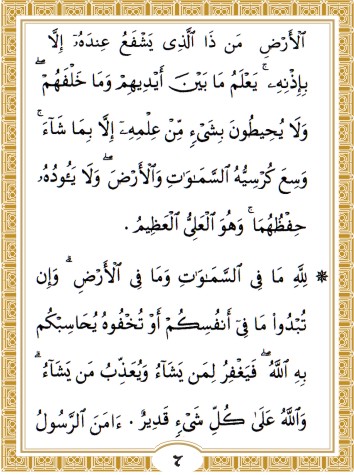 ٱلۡأَرۡضِ مَن ذَا ٱلَّذِى يَشۡفَعُ عِندَهُۥٓ إِلَّا
بِإِذۡنِهِۦۚ يَعۡلَمُ مَا بَيۡنَ أَيۡدِيهِمۡ وَمَا خَلۡفَهُمۡۖ
وَلَا يُحِيطُونَ بِشَىۡءٍ مِّنۡ عِلۡمِهِۦٓ إِلَّا بِمَا شَآءَۚ
وَسِعَ كُرۡسِيُّهُ ٱلسَّمَـٰوَٲتِ وَٱلۡأَرۡضَۖ وَلَا يَـُٔودُهُۥ
حِفۡظُهُمَاۚ وَهُوَ ٱلۡعَلِىُّ ٱلۡعَظِيمُ .
* لِلَّهِ مَا فِى ٱلسَّمَـٰوَٲتِ وَمَا فِى ٱلۡأَرۡضِۗ وَإِن
تُبۡدُواْ مَا فِىٓ أَنفُسِكُمۡ أَوۡ تُخۡفُوهُ يُحَاسِبۡكُم
بِهِ ٱللَّهُۖ فَيَغۡفِرُ لِمَن يَشَآءُ وَيُعَذِّبُ مَن يَشَآءُۗ
وَٱللَّهُ عَلَىٰ كُلِّ شَىۡءٍ قَدِيرٌ . ءَامَنَ ٱلرَّسُولُ
٤